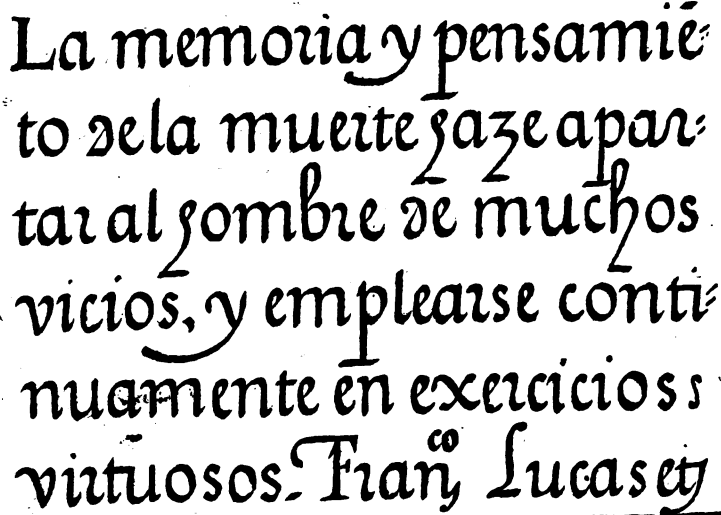 La memoria y pensamiē-
to dela muerte haze apar-
tar al hombre de muchos
vicios, y emplearse conti-
nuamente en exercicios s
virtuosos. Franᶜᵒ Lucas